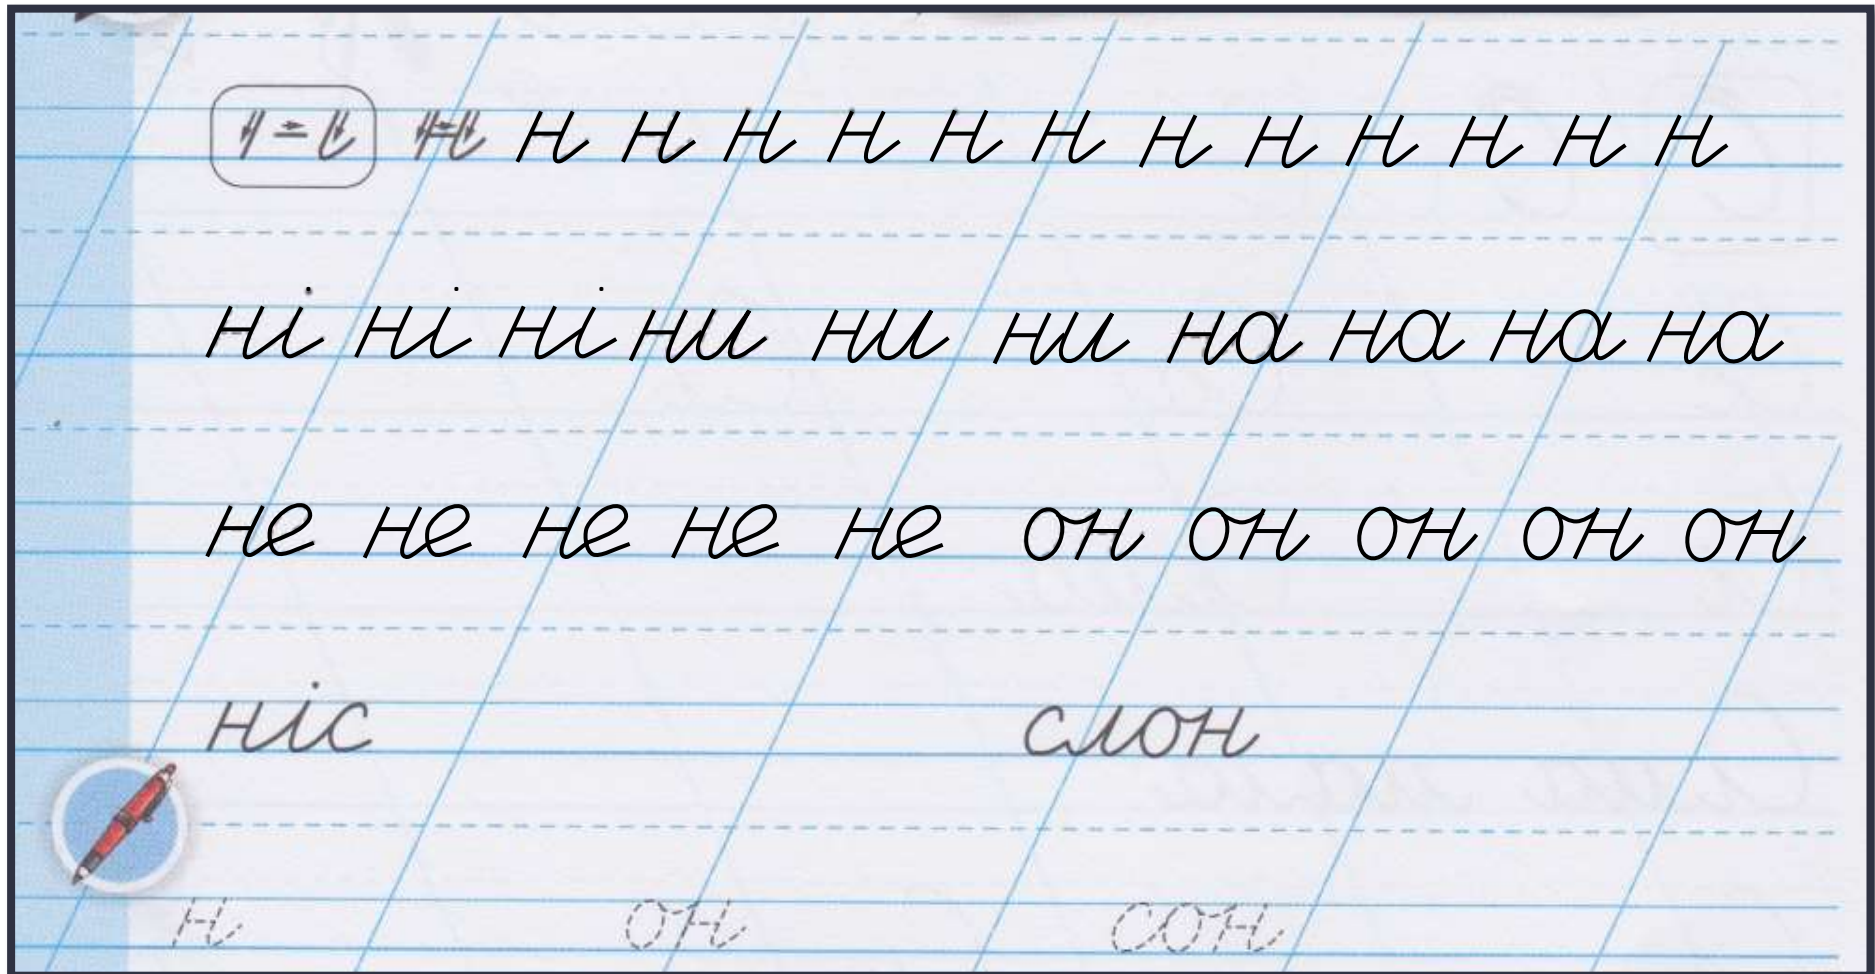 н н н н н н н н н н н н н
ні ні ні ни ни ни на на на на
не не не не не он он он он он
ніс слон
н он сон